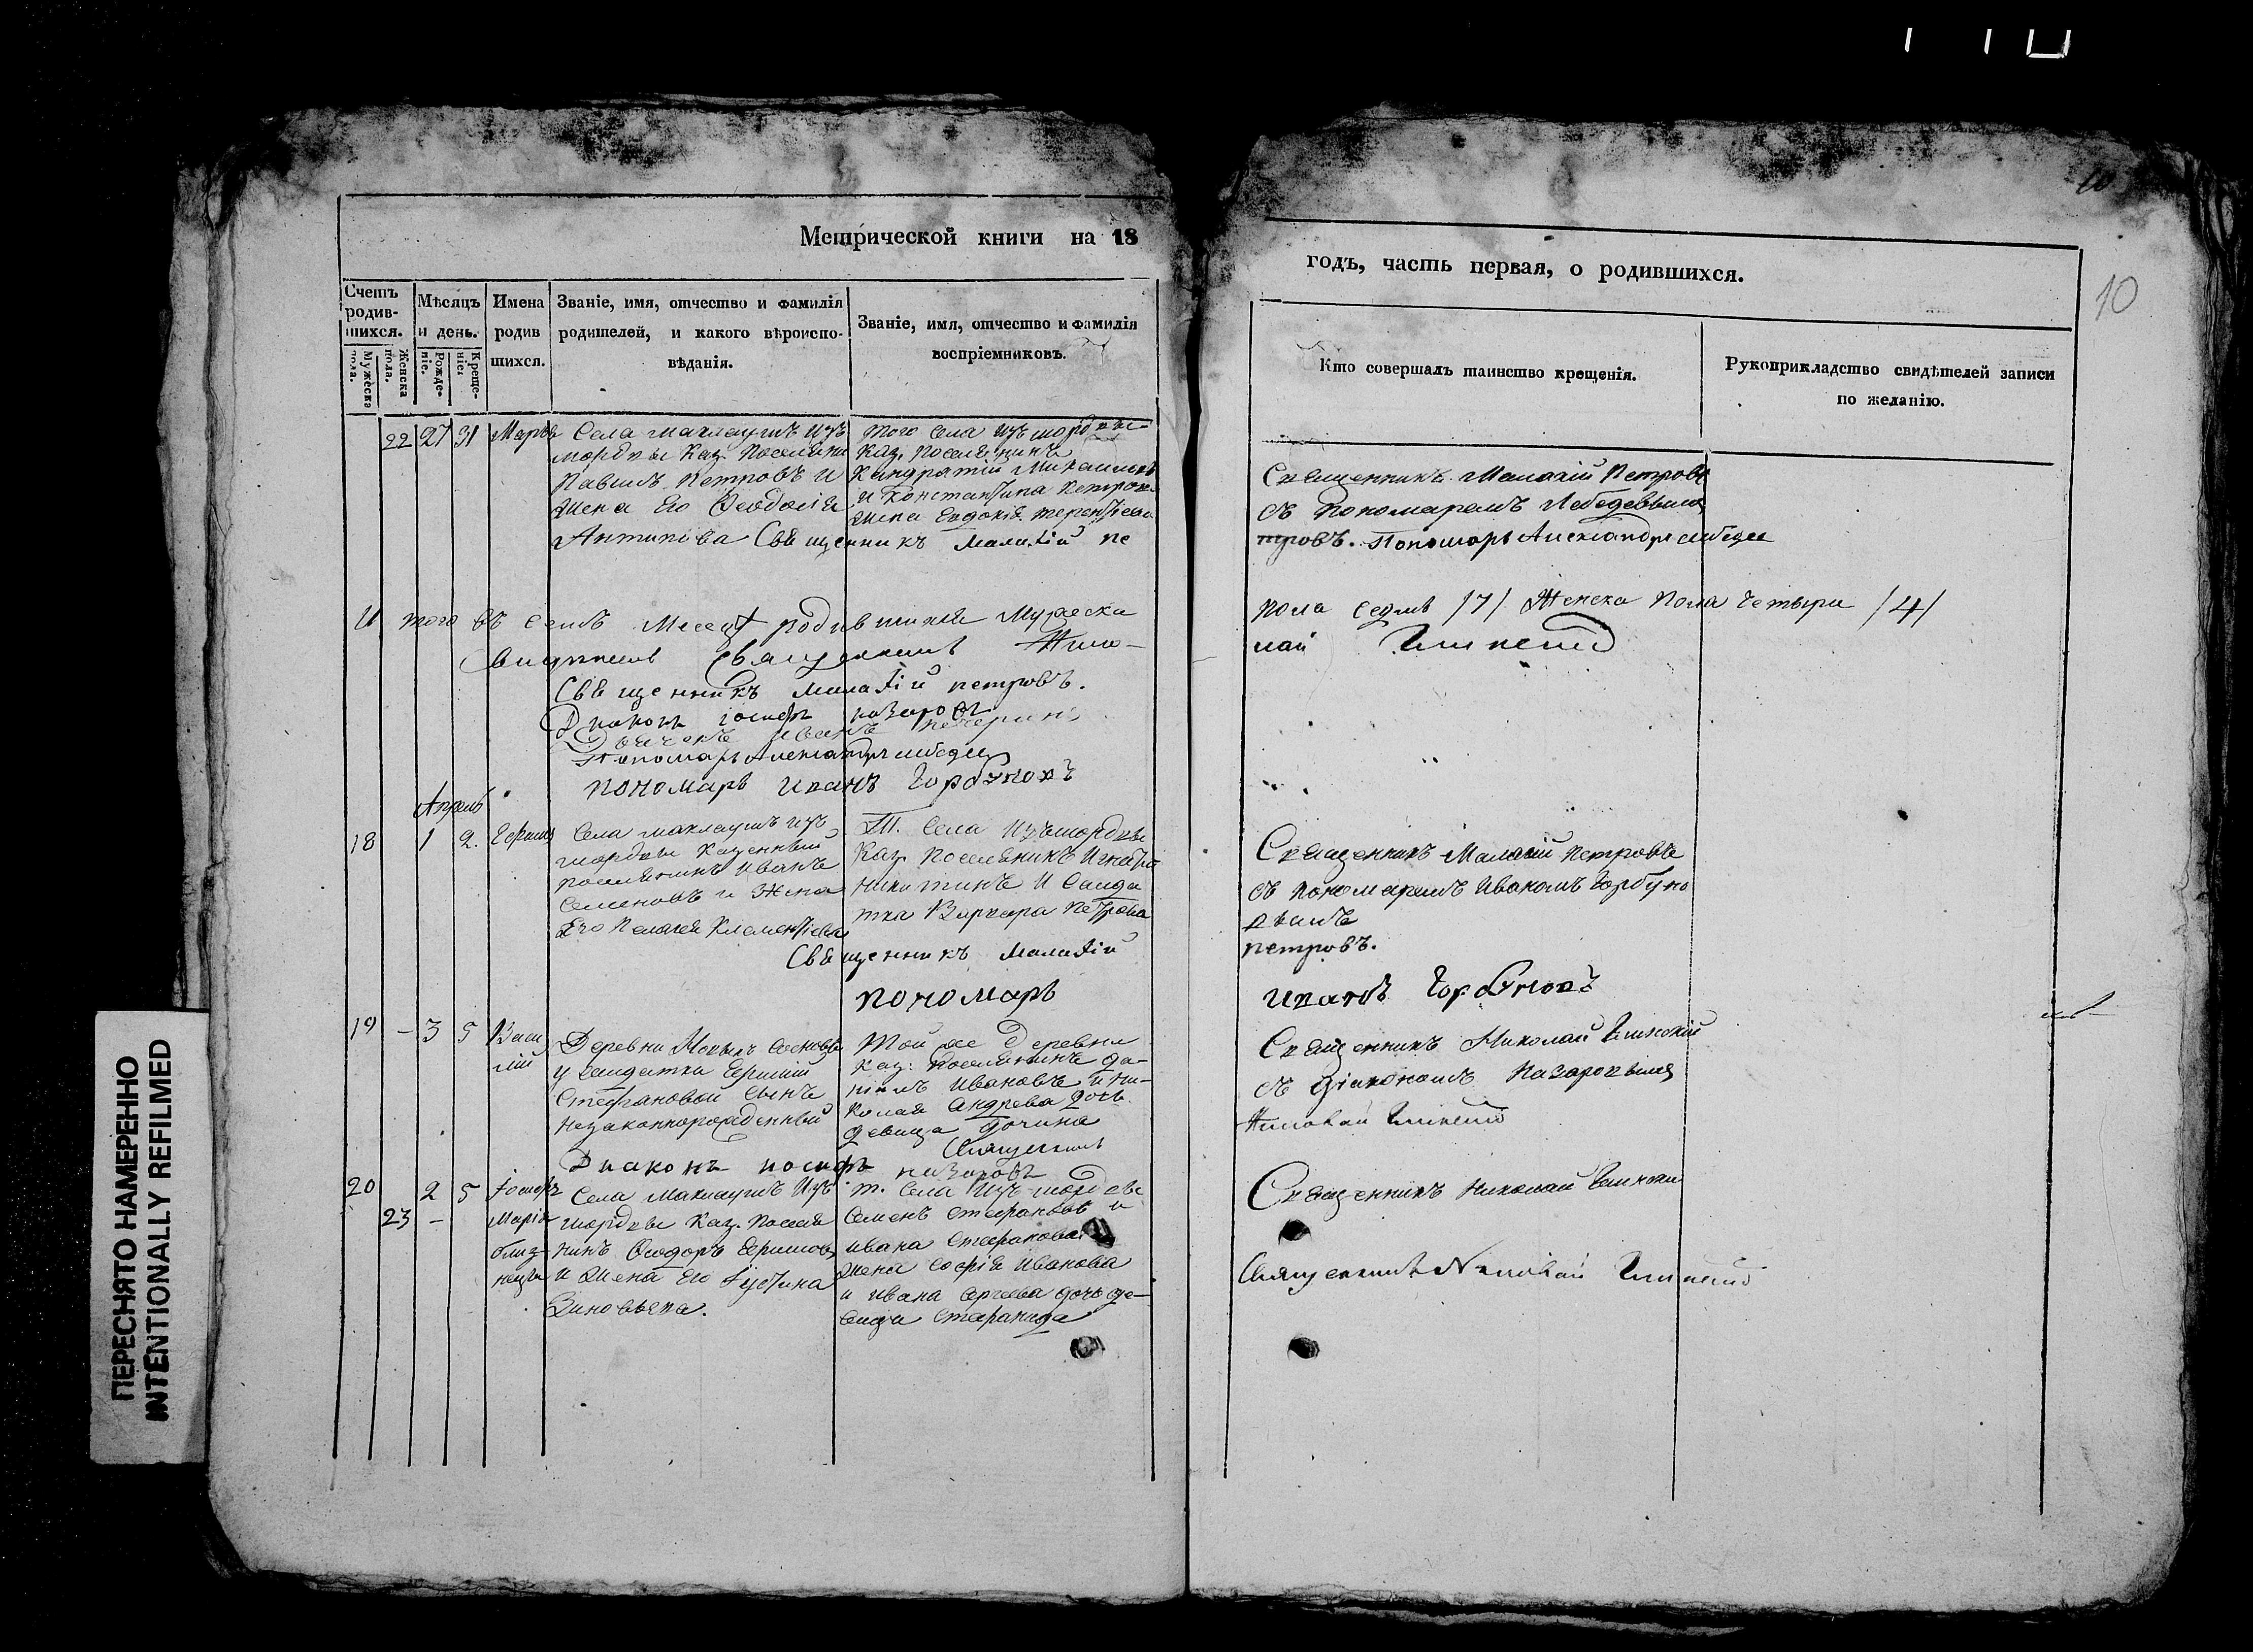 10
10
Метрической книги на 18
годъ, часть первая, о родившихся.
Счетъ родив-шихся.
Мужеска пола.
Женска пола.
Мѣсяцъ и день.
Рожде-ніе.
Креще-ніе.
Имена родив шихся.
Званіе, имя, отчество и фамилія
родителей, и какого вѣроиспо-
вѣданія.
Званіе, имя, отчество и фамилія
воспріемниковъ.
Кто совершалъ таинство крещенія.
Рукоприкладство свидѣтелей записи
по желанію.
22 27 31 Марѳа
Села Маклаушъ изъ
мордвы Каз. Поселянин
Павилъ Петровъ и
жена Его Ѳеодосія
Антипова
того села изъ мордвы
Каз. Поселянинъ
Кандратій Михаиловъ
и Константина Петрова
жена Евдокія терентіева
Священникъ Малахій пе
Священникъ Малахій Петровъ
съ Пономаремъ Лебедевымъ
тровъ. Пономарь Александръ лебедев
И того въ семъ Месецѣ родившихся Мужеска
пола седмь /7/ Женска Пола Четыри /4/
Священникъ Нико-
лай
Священникъ малахій петровъ.
Диаконъ іосифъ назаровъ
Дьячекъ Иванъ
Пономарь Александръ лебедев
пономарь иванъ Горбуновъ
Апрель
18 1 2. Ефимъ
Села маклаушъ изъ
мордвы Казенный
поселянинъ Иванъ
Семеновъ и Жена
Его Пелагея Клементіева
Т. Села Изъ мордвы
Каз. Поселянинъ Игнатій
Никитинъ И Салда
тка Варвара Петрова
Священникъ Малахій петровъ
съ пономаремъ Иваномъ Горбуно
вымъ
Священникъ малахій
петровъ.
пономарь
иванъ Горбуновъ
19 - 3 5 Васи
лій
Деревни Новыхъ
у салдатки
Стефановой сынъ
незаконнорожденный
Той же Деревни
Каз: Поселянинъ да-
нилъ Ивановъ и ни-
колая Андрева дочь
девица
Священникъ Николай Глинскій
съ діакономъ Назаровымъ
Священникъ
Николай
Диаконъ иосифъ назаровъ
20 2 5 Іосифъ
23 - Марія
близ-
нецы
Села Маклаушъ Изъ
мордвы Каз. Поселя
нинъ Ѳеодоръ Ефимовъ
и жена Его Іустина
Зиновьева.
т. Села Изъ мордвы
Семенъ Стефановъ и
ивана Стефанова
жена софія Иванова
и Ивана Сргеева дочь де-
вица Стефанида
Священникъ Николай Глински
Священникъ Николай
ПЕРЕСНЯТО НАМЕРЕННО
INTENTIONALLY REFILMED